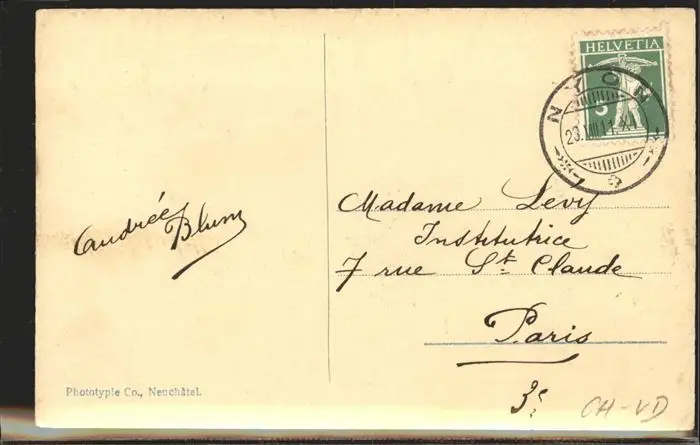 HELVETIA
5
NYON
23.VIII.11.XI
Andrée
Blum
Madame Levy
Institutrice
7 rue St. Claude
Paris
3e
Phototypie Co., Neuchâtel.
CH-VD